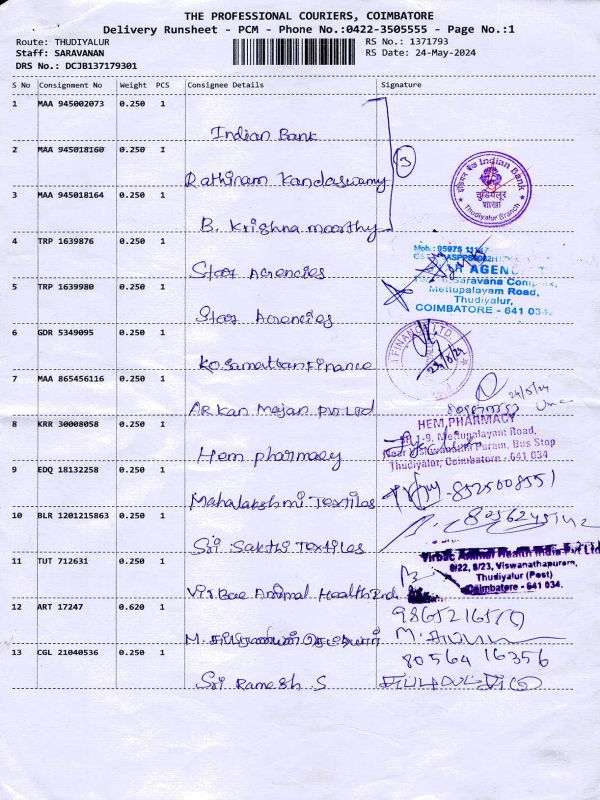 THE PROFESSIONAL COURIERS, COIMBATORE
Delivery Runsheet - PCM - Phone No.:0422-3505555 - Page No.:1
Route: THUDIYALUR RS No.: 1371793
Staff: SARAVANAN RS Date: 24-May-2024
DRS No.: DCJB137179301
S No Consignment No Weight PCS Consignee Details Signature
1 MAA 945002073 0.250 1
Indian Bank
2 MAA 945018160 0.250 1
3
Rathinam Kandaswamy
Indian Bank
इंडियन बैंक
तुडियलूर
शाखा
Thudiyalur Branch
3 MAA 945018164 0.250 1
B. Krishna moorthy
4 TRP 1639876 0.250 1
Star Agencies
Mob.: 95975
AGEN
Saravana Complex,
Mettupalayam Road,
Thudiyalur,
COIMBATORE - 641 034.
5 TRP 1639980 0.250 1
Star Agencies
6 GDR 5349095 0.250 1
Kosamattam Finance
FINANCE LTD.
24/5/24
7 MAA 865456116 0.250 1
24/5/24
AR Kan Majan Pvt Ltd
8 KRR 30008058 1
HEM PHARMACY
1-9, Mettupalayam Road,
Near Viswanatha Puram, Bus Stop
Thudiyalur, Coimbatore - 641 034
Hem pharmacy
9 EDQ 18132258 0.250 1
Mahalakshmi Textiles
8525008551
10 BLR 1201215863 0.250 1
Sri Sakthi Textiles
8056245142
11 TUT 712631 0.250 1
Virbac Animal Health India Pvt Ltd
8/22, 8/23, Viswanathapuram,
Thudiyalur (Post)
Coimbatore - 641 034.
Virbac Animal Health Ind.
12 ART 17247 0.620 1
M.
M.
13 CGL 21040536 0.250 1
80564 16356
Sri Ramesh S